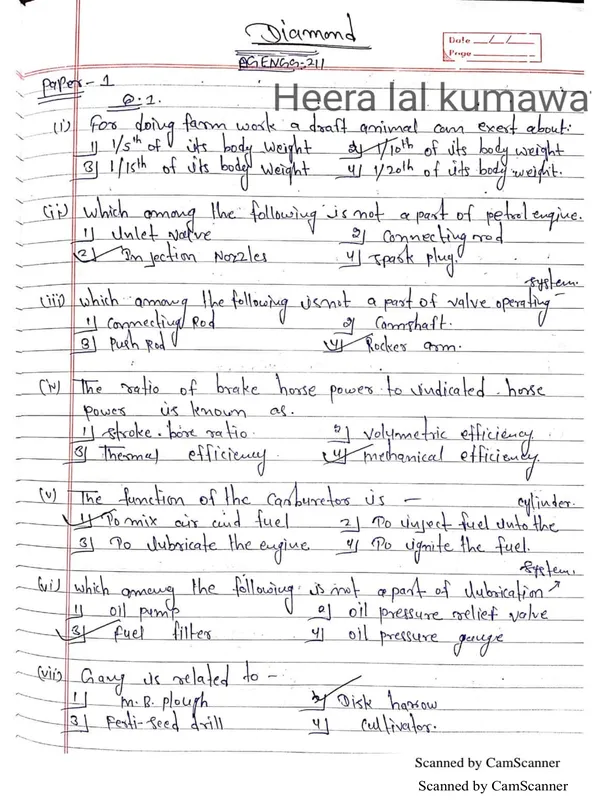 Diamond
Date __/__/__
Page
AGENGG-211
Paper - 1
Q.1.
Heera lal kumawa
(i) For doing farm work a draft animal can exert about:
1) 1/5th of its body weight 2) 1/10th of its body weight
3) 1/15th of its body weight 4) 1/20th of its body weight.
(ii) which among the following is not a part of petrol engine.
1) Inlet valve 2) Connecting rod
3) Injection Nozzles 4) Spark plug.
(iii) which among the following is not a part of valve operating system.
1) Connecting Rod 2) Camshaft.
3) Push Rod 4) Rocker arm.
(iv) The ratio of brake horse power to indicated horse
power is known as.
1) stroke-bore ratio. 2) volymetric efficiency
3) Thermal efficiency 4) mechanical efficiency.
(v) The function of the carburetors is -
1) To mix air and fuel 2) To inject fuel into the cylinder.
3) To lubricate the engine 4) To ignite the fuel.
(vi) which among the following is not a part of lubrication system.
1) oil pump 2) oil pressure relief valve
3) fuel filter 4) oil pressure gauge
(vii) Gang is related to -
1) M.B. plough 2) Disk harrow
3) Ferti-seed drill 4) cultivator.
Scanned by CamScanner
Scanned by CamScanner